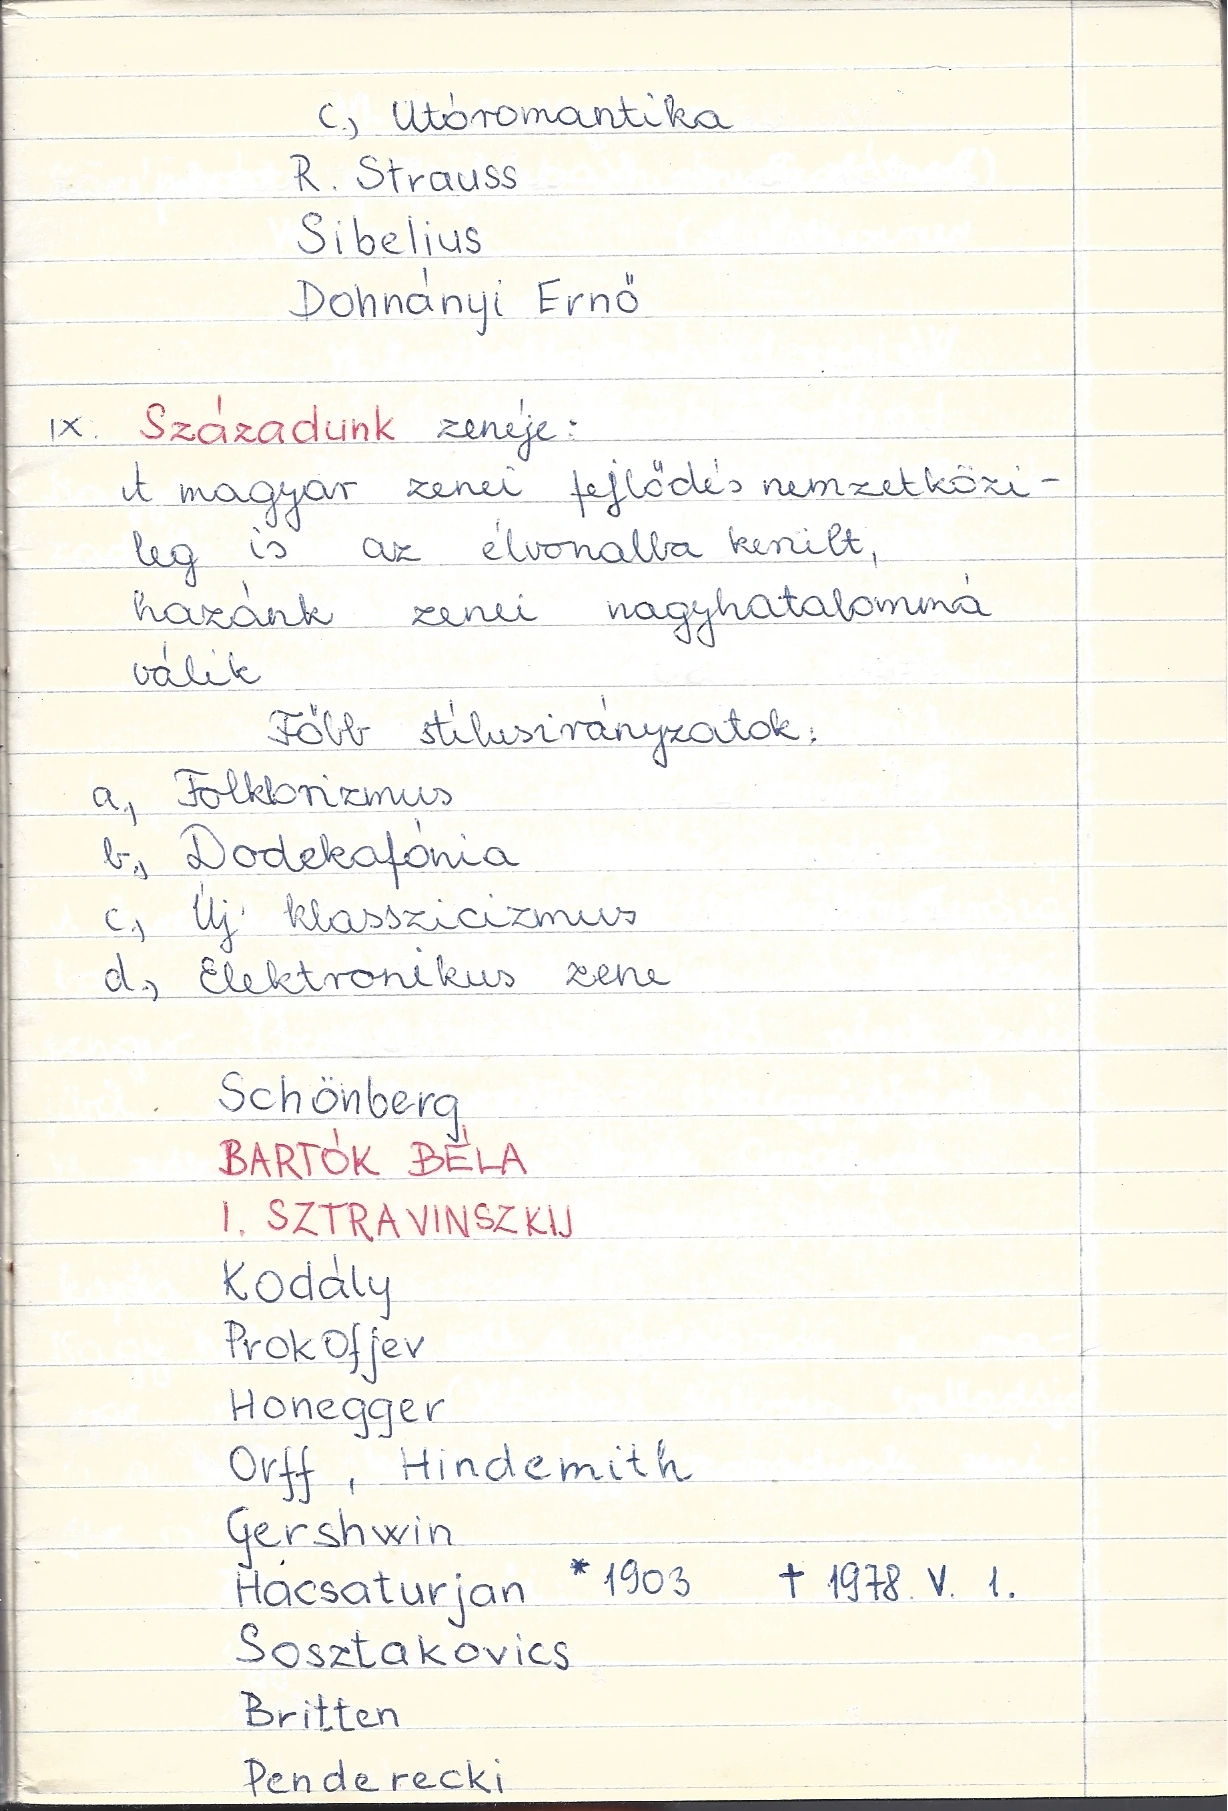 c., Utóromantika
R. Strauss
Sibelius
Dohnányi Ernő
IX. Századunk zenéje:
A magyar zenei fejlődés nemzetközi-
leg is az élvonalba került,
hazánk zenei nagyhatalommá
válik
Főbb stílusirányzatok:
a., Folklorizmus
b., Dodekafónia
c., Új klasszicizmus
d., Elektronikus zene
Schönberg
BARTÓK BÉLA
I. SZTRAVINSZKIJ
Kodály
Prokofjev
Honegger
Orff, Hindemith
Gershwin
Hacsaturján * 1903 † 1978. V. 1.
Sosztakovics
Britten
Penderecki